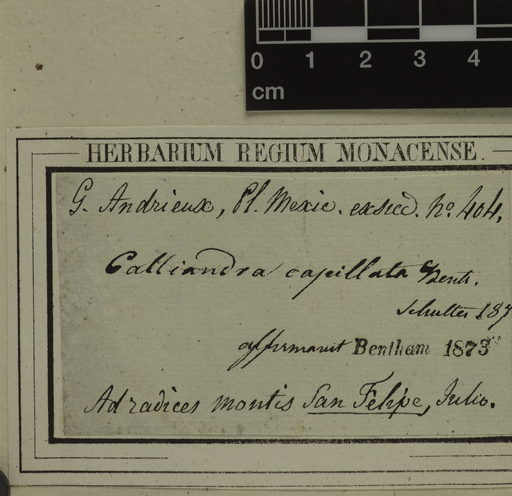 0 1 2 3 4
cm
HERBARIUM REGIUM MONACENSE.
G. Andrieux, Pl. Mexic. exsicc. No. 404.
Calliandra capillata Benth.
Schultes 187
affirmavit Bentham 1873
Ad radices montis San Felipe, Julio.